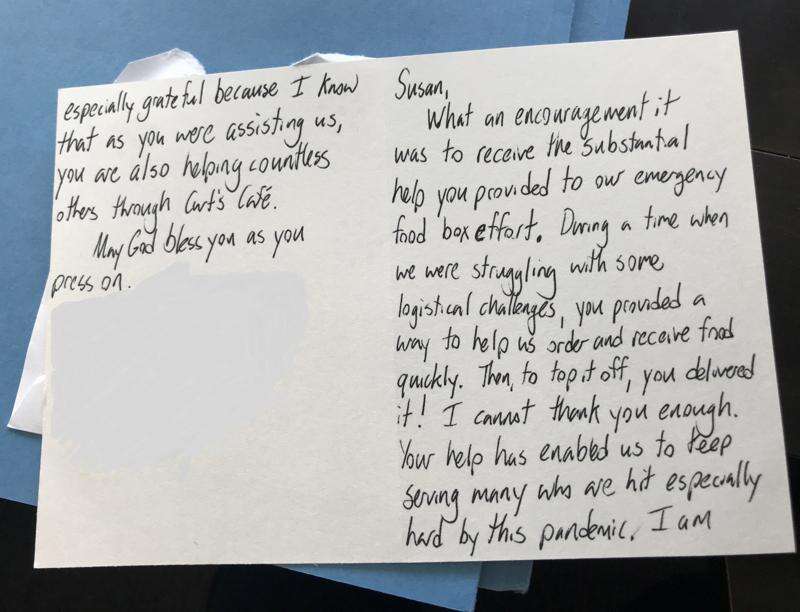 Susan,
What an encouragement it
was to receive the substantial
help you provided to our emergency
food box effort. During a time when
we were struggling with some
logistical challenges, you provided a
way to help us order and receive food
quickly. Then, to top it off, you delivered
it! I cannot thank you enough.
Your help has enabled us to keep
serving many who are hit especially
hard by this pandemic. I am
especially grateful because I know
that as you were assisting us,
you are also helping countless
others through Curt's Café.
May God bless you as you
press on.